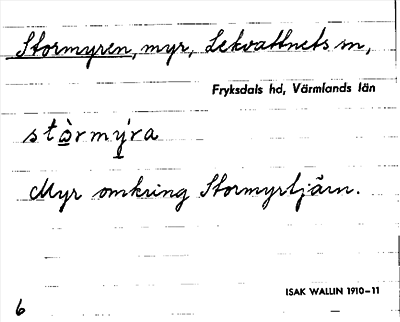 Stormyren, myr, Lekvattnets sn,
Fryksdals hd, Värmlands län
stòrmýra
Myr omkring Stormyrtjärn.
ISAK WALLIN 1910–11
6